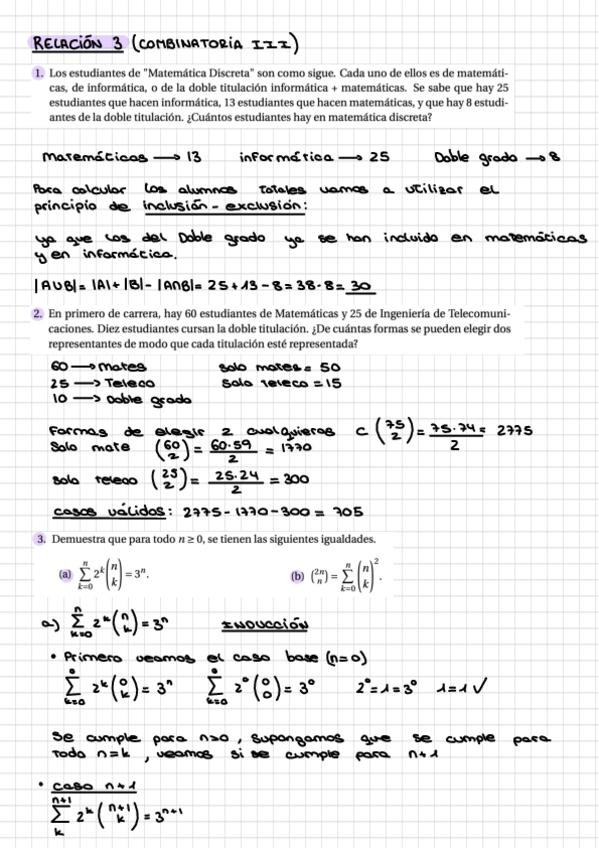 RELACIÓN 3 (COMBINATORIA III)
1. Los estudiantes de "Matemática Discreta" son como sigue. Cada uno de ellos es de matemáti-
cas, de informática, o de la doble titulación informática + matemáticas. Se sabe que hay 25
estudiantes que hacen informática, 13 estudiantes que hacen matemáticas, y que hay 8 estudi-
antes de la doble titulación. ¿Cuántos estudiantes hay en matemática discreta?
matemáticas → 13 informática → 25 Doble grado → 8
Para calcular los alumnos totales vamos a utilizar el
principio de inclusión - exclusión:
ya que los del Doble grado ya se han incluido en matemáticas
y en informática.
|A∪B| = |A| + |B| - |A∩B| = 25 + 13 - 8 = 38 - 8 = 30
2. En primero de carrera, hay 60 estudiantes de Matemáticas y 25 de Ingeniería de Telecomuni-
caciones. Diez estudiantes cursan la doble titulación. ¿De cuántas formas se pueden elegir dos
representantes de modo que cada titulación esté representada?
60 → mates solo mates = 50
25 → Teleco Solo teleco = 15
10 → Doble grado
Formas de elegir 2 cualquieras C (75 2) = 75·74 / 2 = 2775
Solo mate (60 2) = 60·59 / 2 = 1770
solo teleco (25 2) = 25·24 / 2 = 300
casos válidos: 2775 - 1770 - 300 = 705
3. Demuestra que para todo n ≥ 0, se tienen las siguientes igualdades.
(a) ∑_{k=0}^{n} 2^k (n k) = 3^n. (b) (2n n) = ∑_{k=0}^{n} (n k)^2.
a) ∑_{k=0}^{n} 2^k (n k) = 3^n INDUCCIÓN
• Primero veamos el caso base (n=0)
∑_{k=0}^{0} 2^k (0 k) = 3^n ∑_{k=0}^{0} 2^0 (0 0) = 3^0 2^0 = 1 = 3^0 1 = 1 ✓
Se cumple para n≥0, supongamos que se cumple para
todo n=k, veamos si se cumple para n+1
• caso n+1
∑_{k}^{n+1} 2^k (n+1 k) = 3^{n+1}